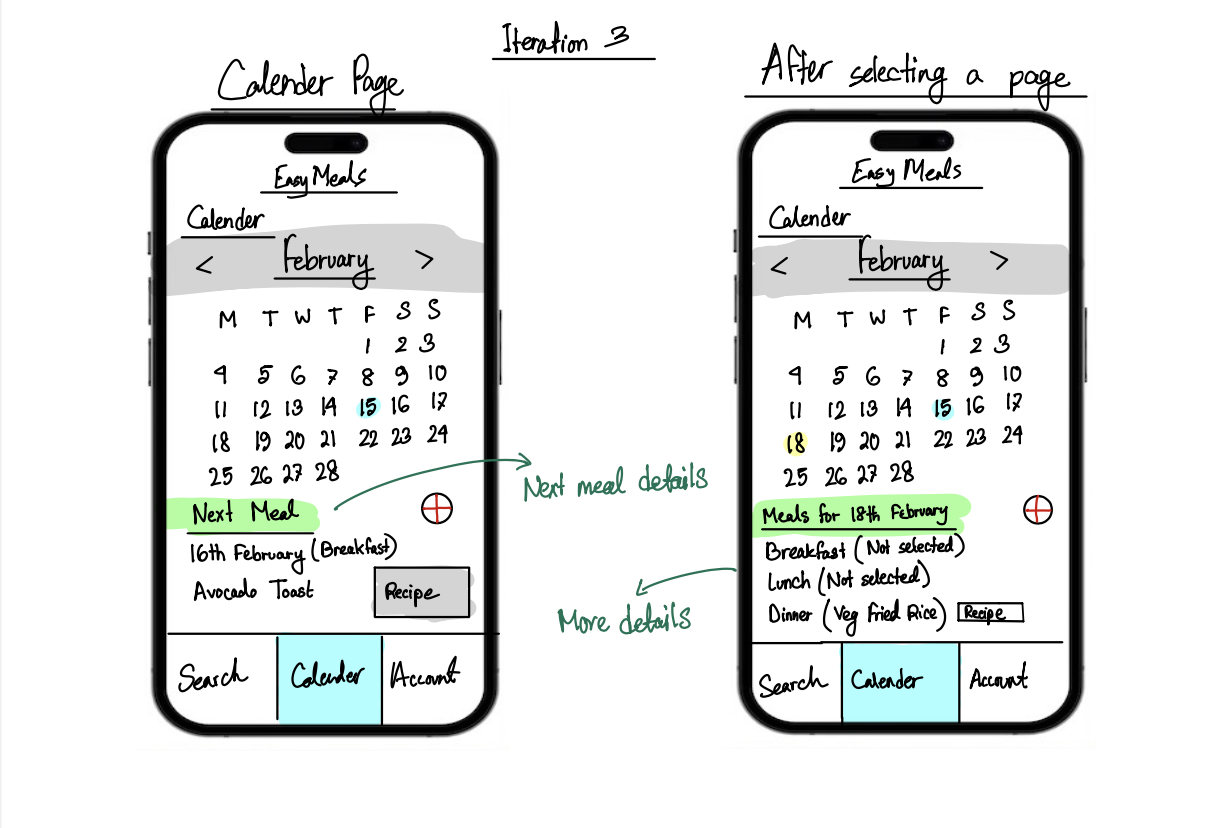 Iteration 3
Calender Page
Easy Meals
Calender
< February >
M T W T F S S
1 2 3
4 5 6 7 8 9 10
11 12 13 14 15 16 17
18 19 20 21 22 23 24
25 26 27 28
Next Meal
16th February (Breakfast)
Avocado Toast
Recipe
Search Calender Account
Next meal details
More details
After selecting a page
Easy Meals
Calender
< February >
M T W T F S S
1 2 3
4 5 6 7 8 9 10
11 12 13 14 15 16 17
18 19 20 21 22 23 24
25 26 27 28
Meals for 18th February
Breakfast (Not selected)
Lunch (Not selected)
Dinner (Veg Fried Rice) Recipe
Search Calender Account